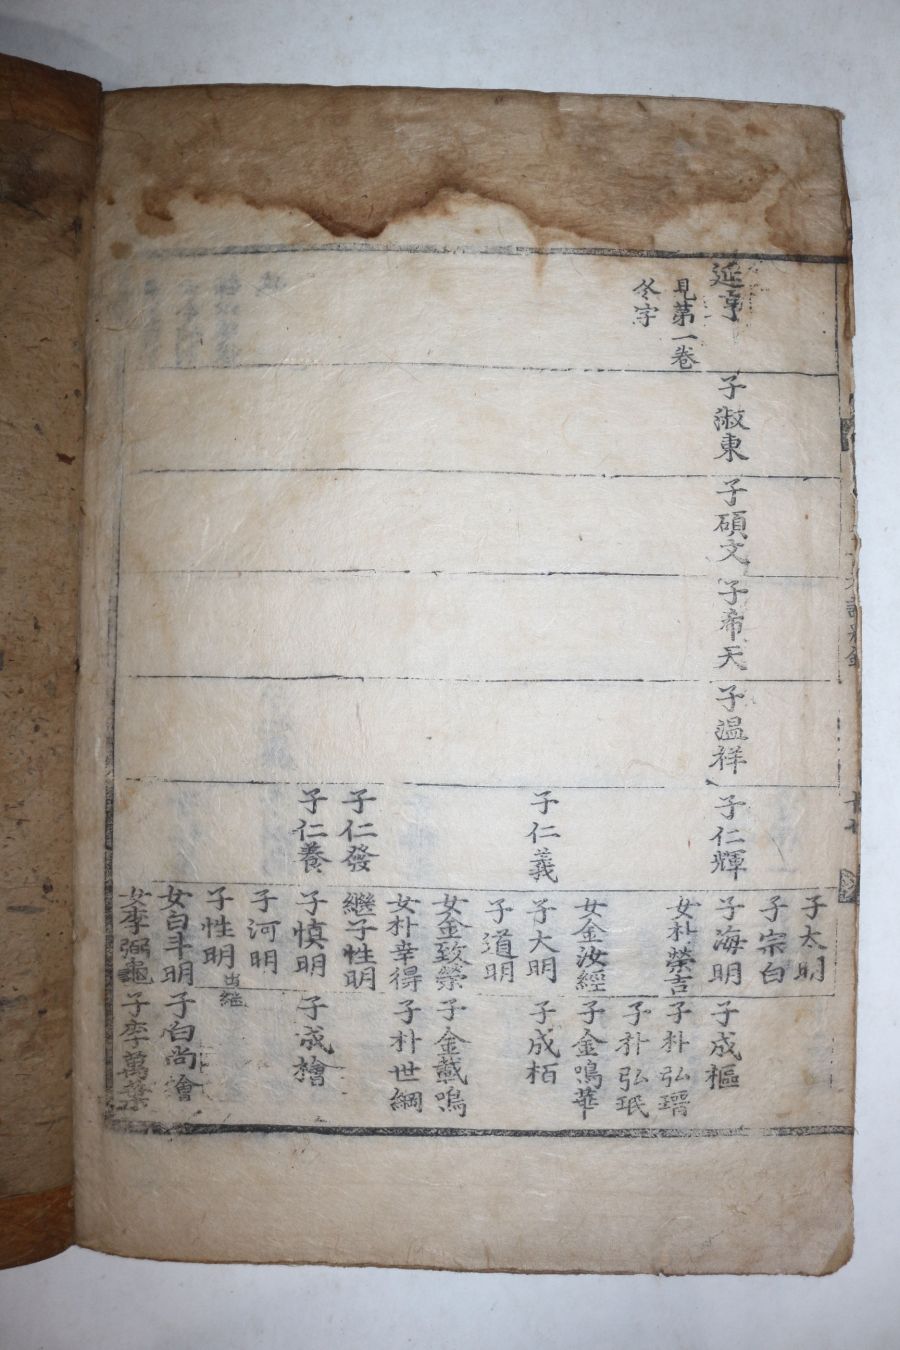 延亨
見第一卷
冬字
子淑東
子碩文
子希天
子溫祥
子仁輝
子仁義
子仁發
子仁養
子太明
子宗白
子海明
女朴榮吉
女金汝經
子大明
子道明
女金致榮
女朴幸得
繼子性明
子慎明
子河明
子性明
出繼
女白斗明
女李弼龜
子成樞
子朴弘瑨
子朴弘珉
子金鳴華
子成栢
子金載鳴
子朴世綱
子成檜
子白尚澮
子李萬葉